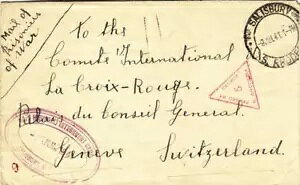 Mail of
Prisoners
of War
To the
Comité International
La Croix-Rouge.
Palais du Conseil General.
Geneve Switzerland.
SALISBURY
S. RHOD
INTERNMENT
5